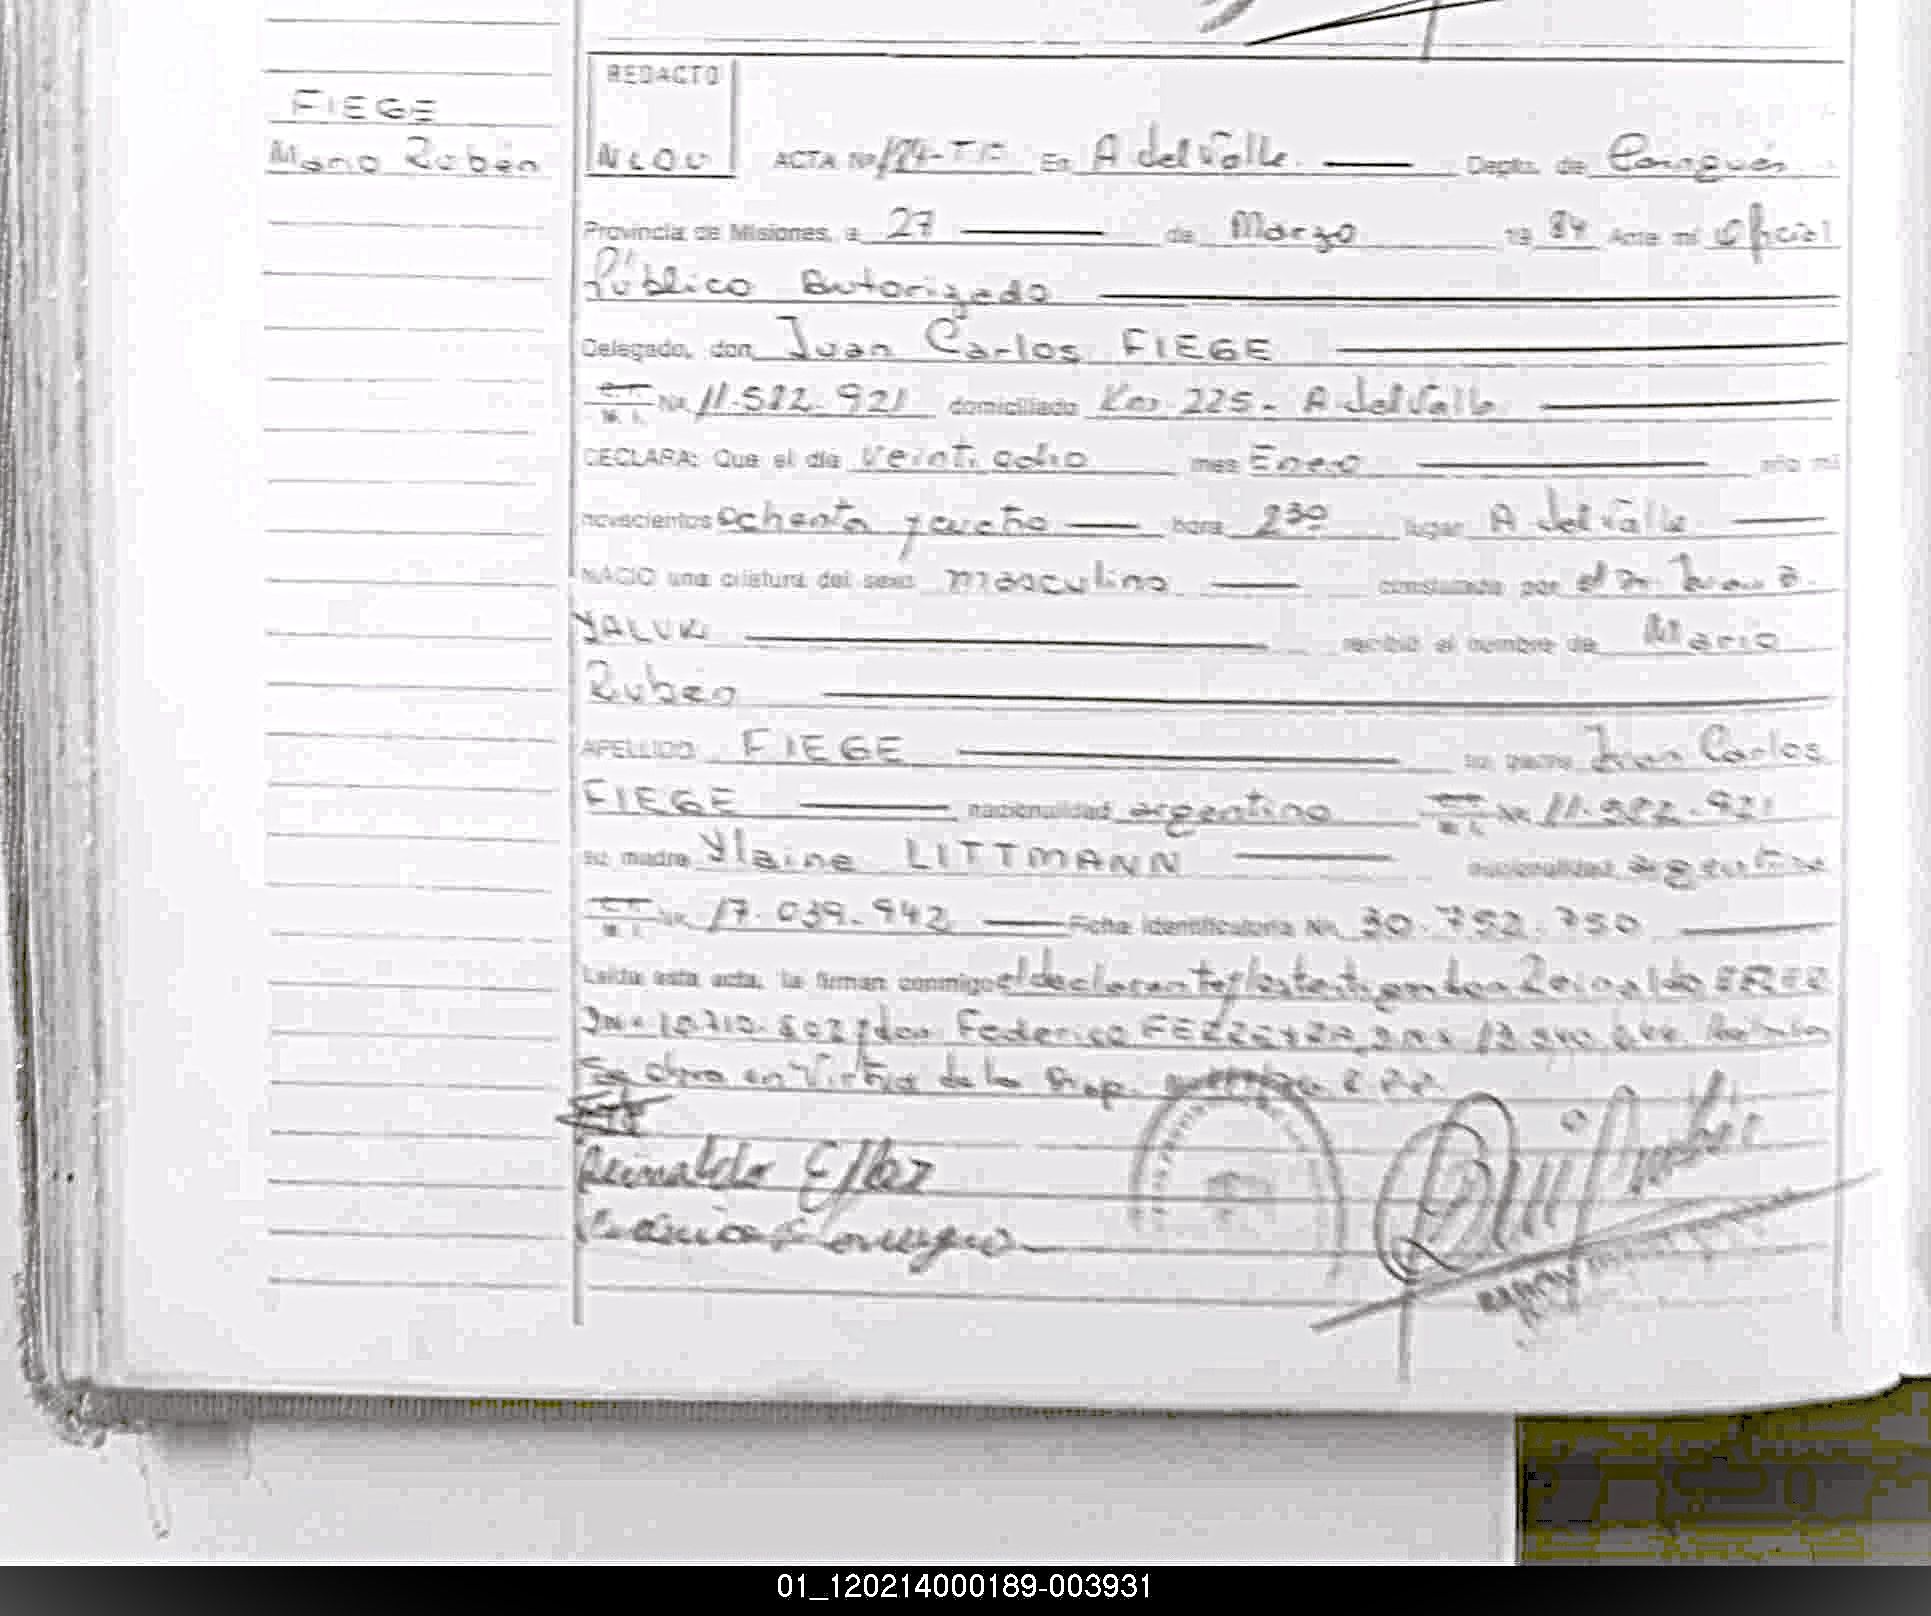 REDACTO
FIEGE
Mario Rubén
ACTA Nº En A del Valle Depto. de Cainguás
Provincia de Misiones, a 27 de Marzo 19 84 Ante mí Oficial
Público Autorizado
Delegado, don Juan Carlos FIEGE
Nº 11.582.921 domiciliado Km. 225 - A del Valle
DECLARA: Que el día veintiocho mes Enero año mil
novecientos ochenta y cuatro hora 2 30 lugar A del Valle
NACIO una criatura del sexo masculino constatado por el Dr. Juan
YALUK recibió el nombre de Mario
Rubén
APELLIDO FIEGE su padre Juan Carlos
FIEGE nacionalidad argentino Nº 11.582.921
su madre Ylaine LITTMANN nacionalidad argentina
M. I. Nº 17.039.942 Ficha identificatoria Nº 30.752.750
Leída esta acta, la firman conmigo el declarante y los testigos don Reinaldo
don Federico FERREYRA
se obra en Virtud de la Disp.
Reinaldo
01_120214000189-003931